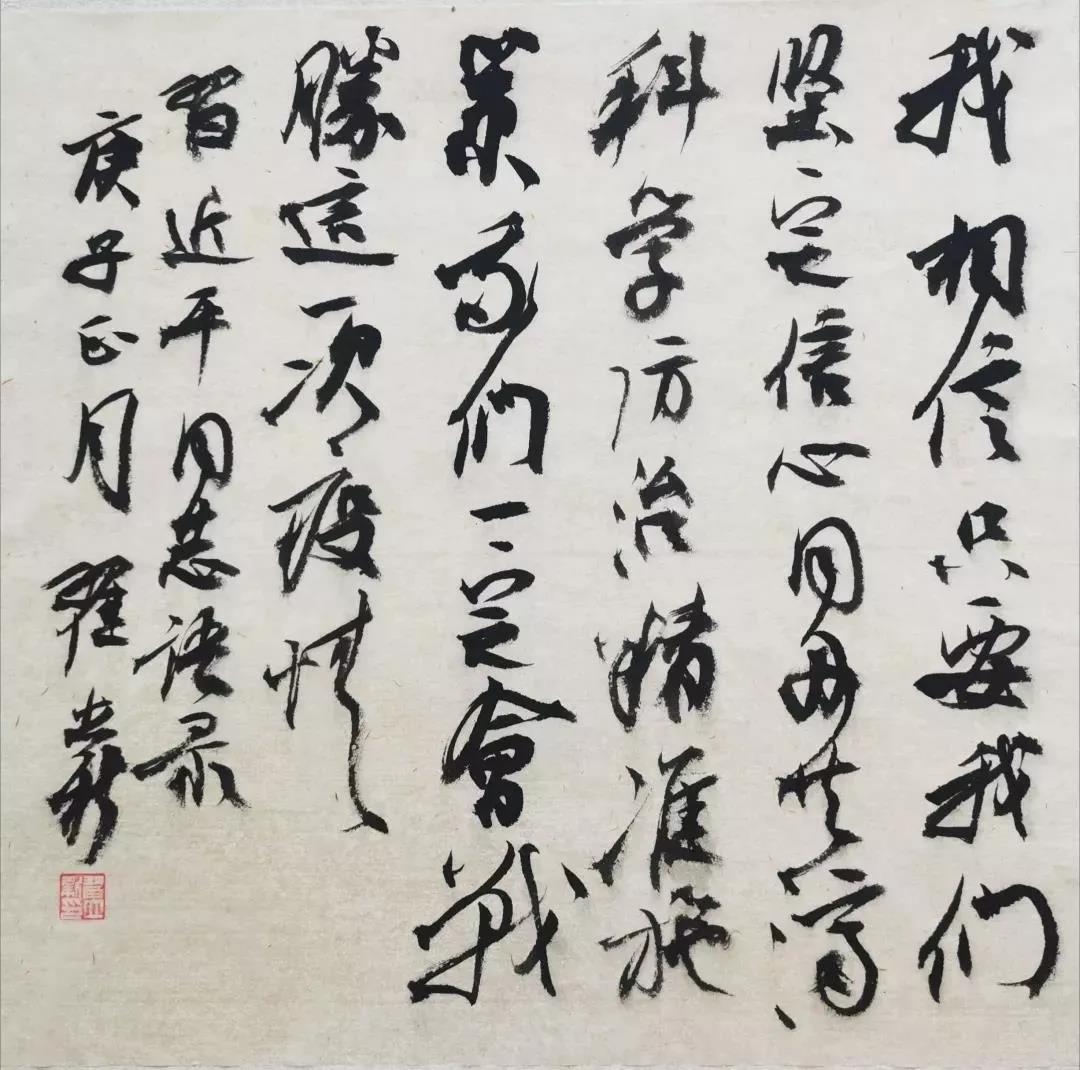 我相信只要我们
坚定信心同舟共济
科学防治精准施
策我们一定會戰
勝這一次疫情
習近平同志语录
庚子正月 翟